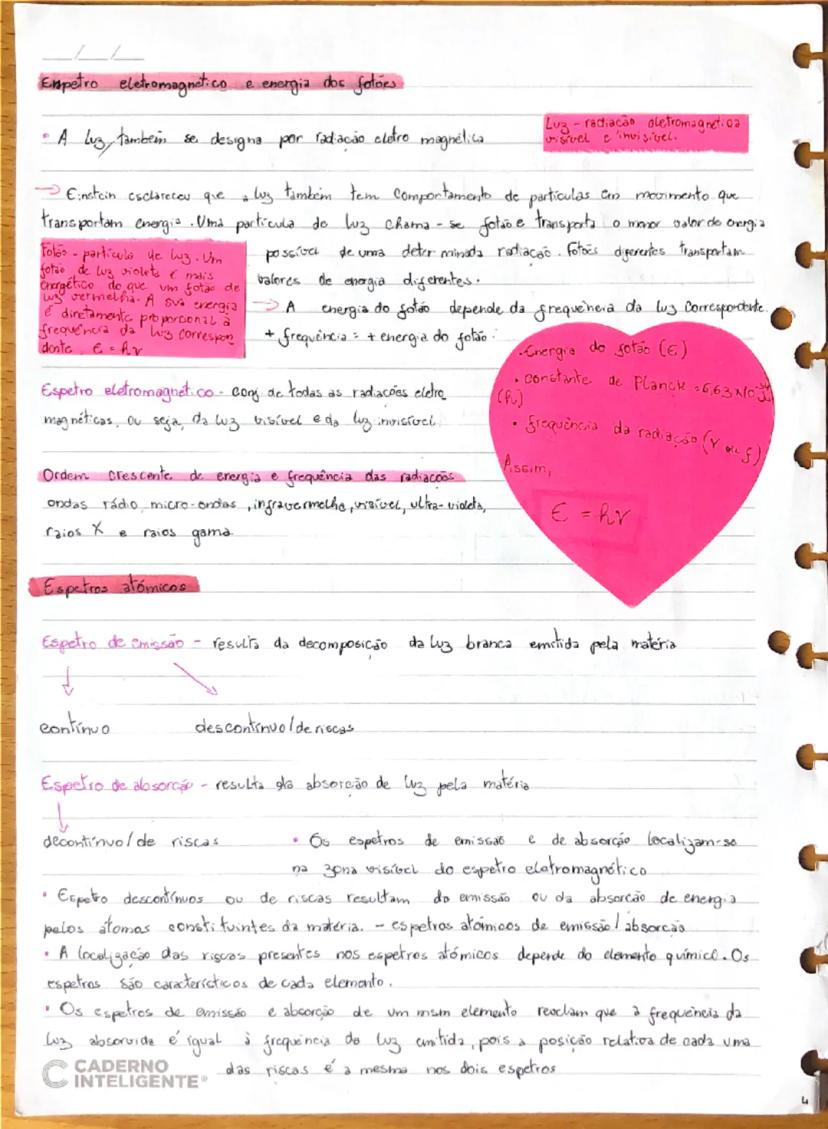 __/__/__
Espetro eletromagnético e energia dos fotões
• A luz, também se designa por radiação eletro magnética
Luz - radiação eletromagnética
visível e invisível.
→ Einstein esclareceu que a luz também tem comportamento de partículas em movimento que
transportam energia. Uma partícula de luz chama-se fotão e transporta o menor valor de energia
possível de uma determinada radiação. Fotões diferentes transportam
valores de energia diferentes.
Fotão - partícula de luz. Um
fotão de luz violeta é mais
energético do que um fotão de
luz vermelha. A sua energia
é diretamente proporcional à
frequência da luz correspon
dente. E = hν
→ A energia do fotão depende da frequência da luz correspondente.
+ frequência = + energia do fotão:
• Energia do fotão (E)
• constante de Planck = 6,63x10^-34 Js
(h)
• frequência da radiação (ν ou f)
Assim,
E = hν
Espetro eletromagnético - conj. de todas as radiações eletro
magnéticas, ou seja, da luz visível e da luz invisível
Ordem crescente de energia e frequência das radiações
ondas rádio, micro-ondas, infravermelha, visível, ultra-violeta,
raios X e raios gama
Espetros atómicos
Espetro de emissão - resulta da decomposição da luz branca emitida pela matéria
contínuo descontínuo/de riscas
Espetro de absorção - resulta da absorção de luz pela matéria
decontínuo/de riscas
• Os espetros de emissão e de absorção localizam-se
na zona visível do espetro eletromagnético
• Espetro descontínuos ou de riscas resultam da emissão ou da absorção de energia
pelos átomos constituintes da matéria. - espetros atómicos de emissão/absorção
• A localização das riscas presentes nos espetros atómicos depende do elemento químico. Os
espetros são característicos de cada elemento.
• Os espetros de emissão e absorção de um msm elemento revelam que a frequência da
luz absorvida é igual à frequência da luz emitida, pois a posição relativa de cada uma
das riscas é a mesma nos dois espetros
CADERNO
INTELIGENTE®
4